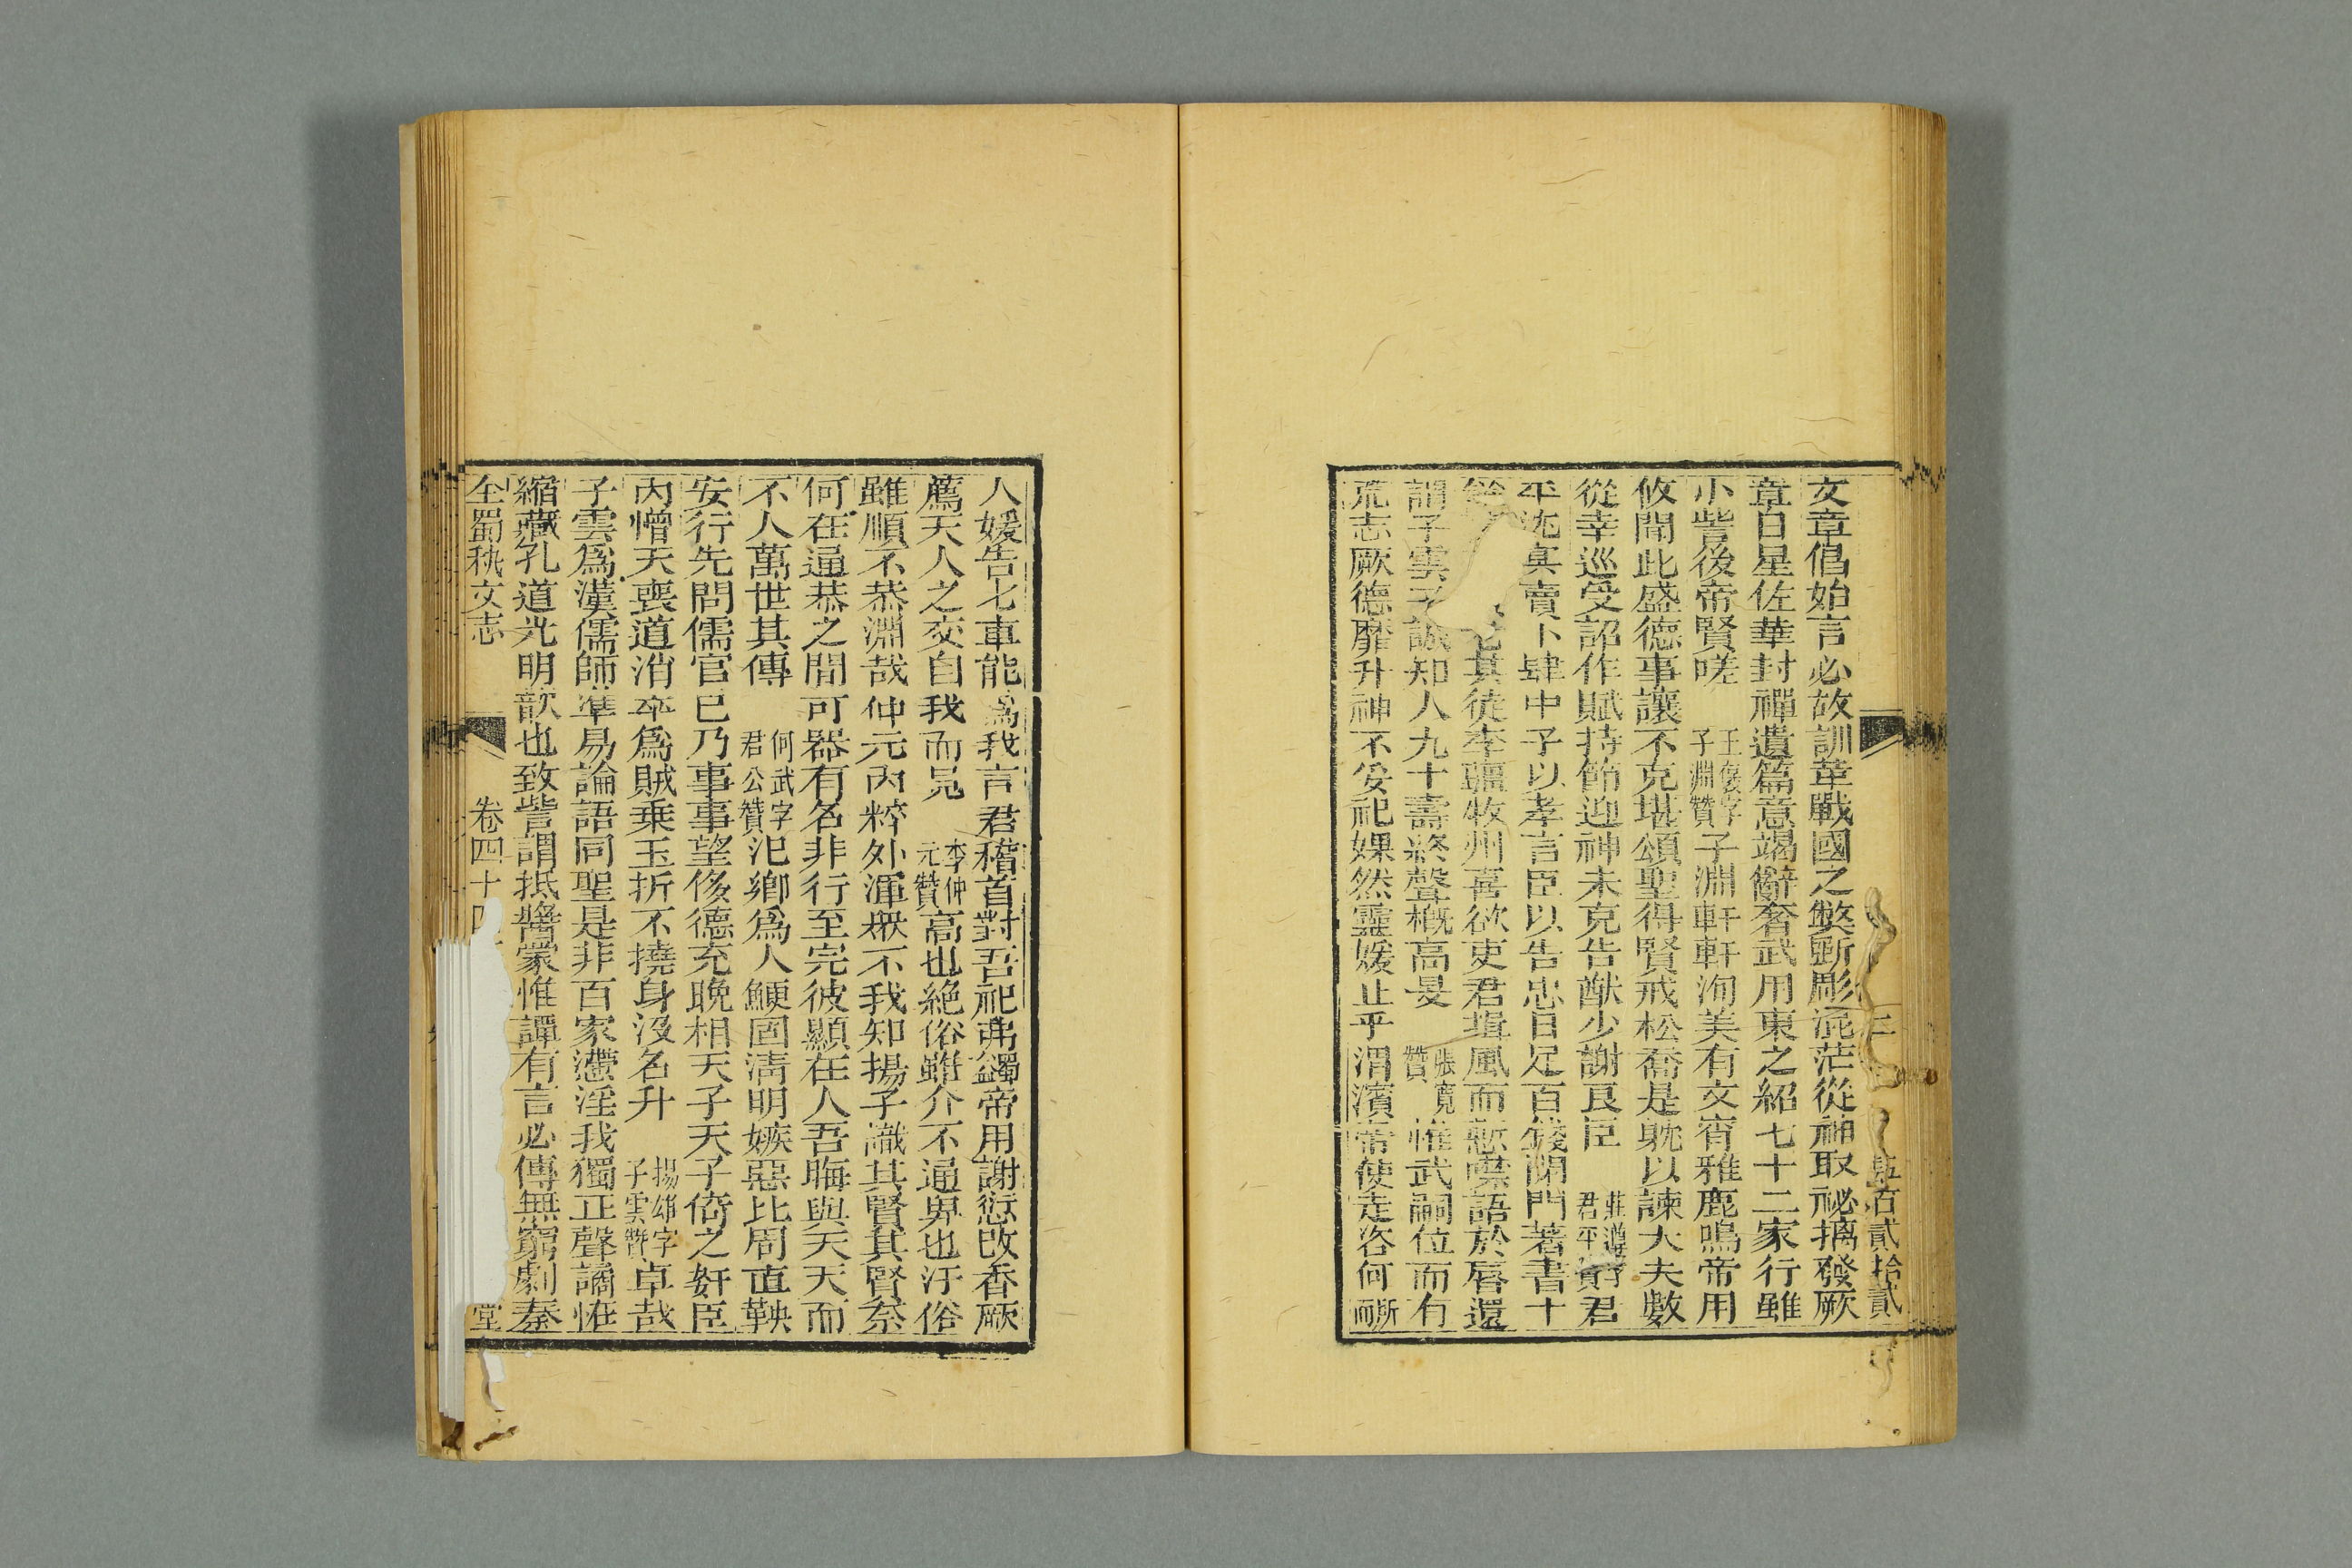 五百貳拾貳
文章倡始言必故訓革戰國之獘斵彫混茫從神取祕摛發厥
章日星佐華封禪遺篇意竭辭奢武用東之紹七十二家行雖
小訾後帝賢嗟 王襃字子淵贊 子淵軒軒洵美有文宵雅鹿鳴帝用
攸聞此盛德事讓不克堪頌聖得賢戒松喬是躭以諫大夫數
從幸巡受詔作賦持節迎神未克告猷少謝良臣 莊遵字君平贊 君
平沈㝠賣卜肆中子以孝言臣以告忠日足百錢閉門著書十
其徒李疆牧州喜欲吏君揖風而慙噤語於脣還
謂子雲子誠知人九十壽終聲槪高旻 張寬贊 惟武嗣位而有
荒志厥德靡升神不妥祀婐然靈媛止乎渭濱帝使走咨何所而
人媛告七車能爲我言君稽首對吾祀弗蠲帝用謝愆改香厥
薦天人之交自我而㒵 李仲元贊 高也絶俗雖介不通㒵也汙俗
雖順不恭淵哉仲元內粹外渾衆不我知揚子識其賢其賢奈
何在逼恭之間可器有名非行至完彼顯在人吾晦與天天而
不人萬世其傳 何武字君公贊 汜鄉爲人鯁固淸明嫉惡比周直鞅
安行先問儒官已乃事事望俊德充晚相天子天子倚之奸臣
內憎天喪道消卒爲賊乗玉折不撓身沒名升 揚雄字子雲贊 卓哉
子雲爲漢儒師準易論語同聖是非百家懘淫我獨正聲譎恠
縮藏孔道光明歆也致訾謂抵醬蒙惟譚有言必傳無窮劇秦
全蜀秇文志 卷四十四 堂